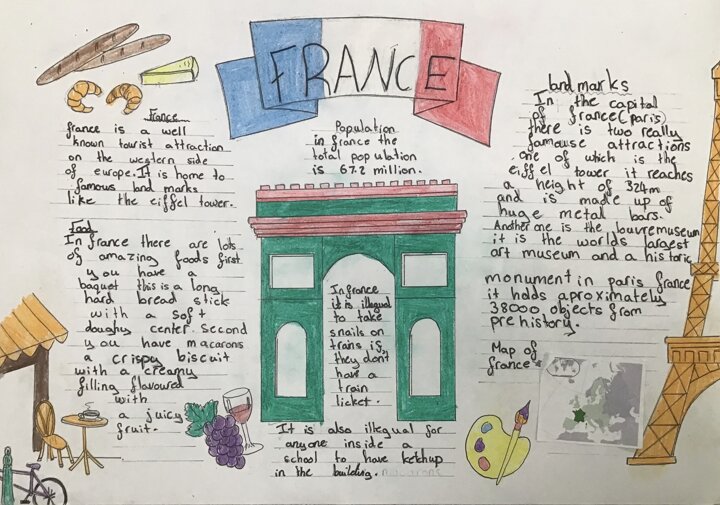 FRANCE
France
france is a well
known tourist attraction
on the western side
of europe. It is home to
famous land marks
like the eiffel tower.
Food
In france there are lots
of amazing foods first
you have a
baguet this is a long
hard bread stick
with a soft
doughy center. Second
you have macarons
a crispy biscuit
with a creamy
filling flavoured
with
a juicy
fruit.
Population
in france the
total population
is 67.2 million.
In france
it is illegual
to take
snails on
trains if
they don't
have a
train
ticket.
It is also illegual for
anyone inside a
school to have ketchup
in the building.
landmarks
In the capital
of france (paris)
there is two really
famouse attractions
one of which is the
eiffel tower it reaches
a height of 324m
and is made up of
huge metal bars.
Another one is the louvre museum
it is the worlds largest
art museum and a historic
monument in paris france
it holds aproximately
38000 objects from
prehistory.
Map of
france